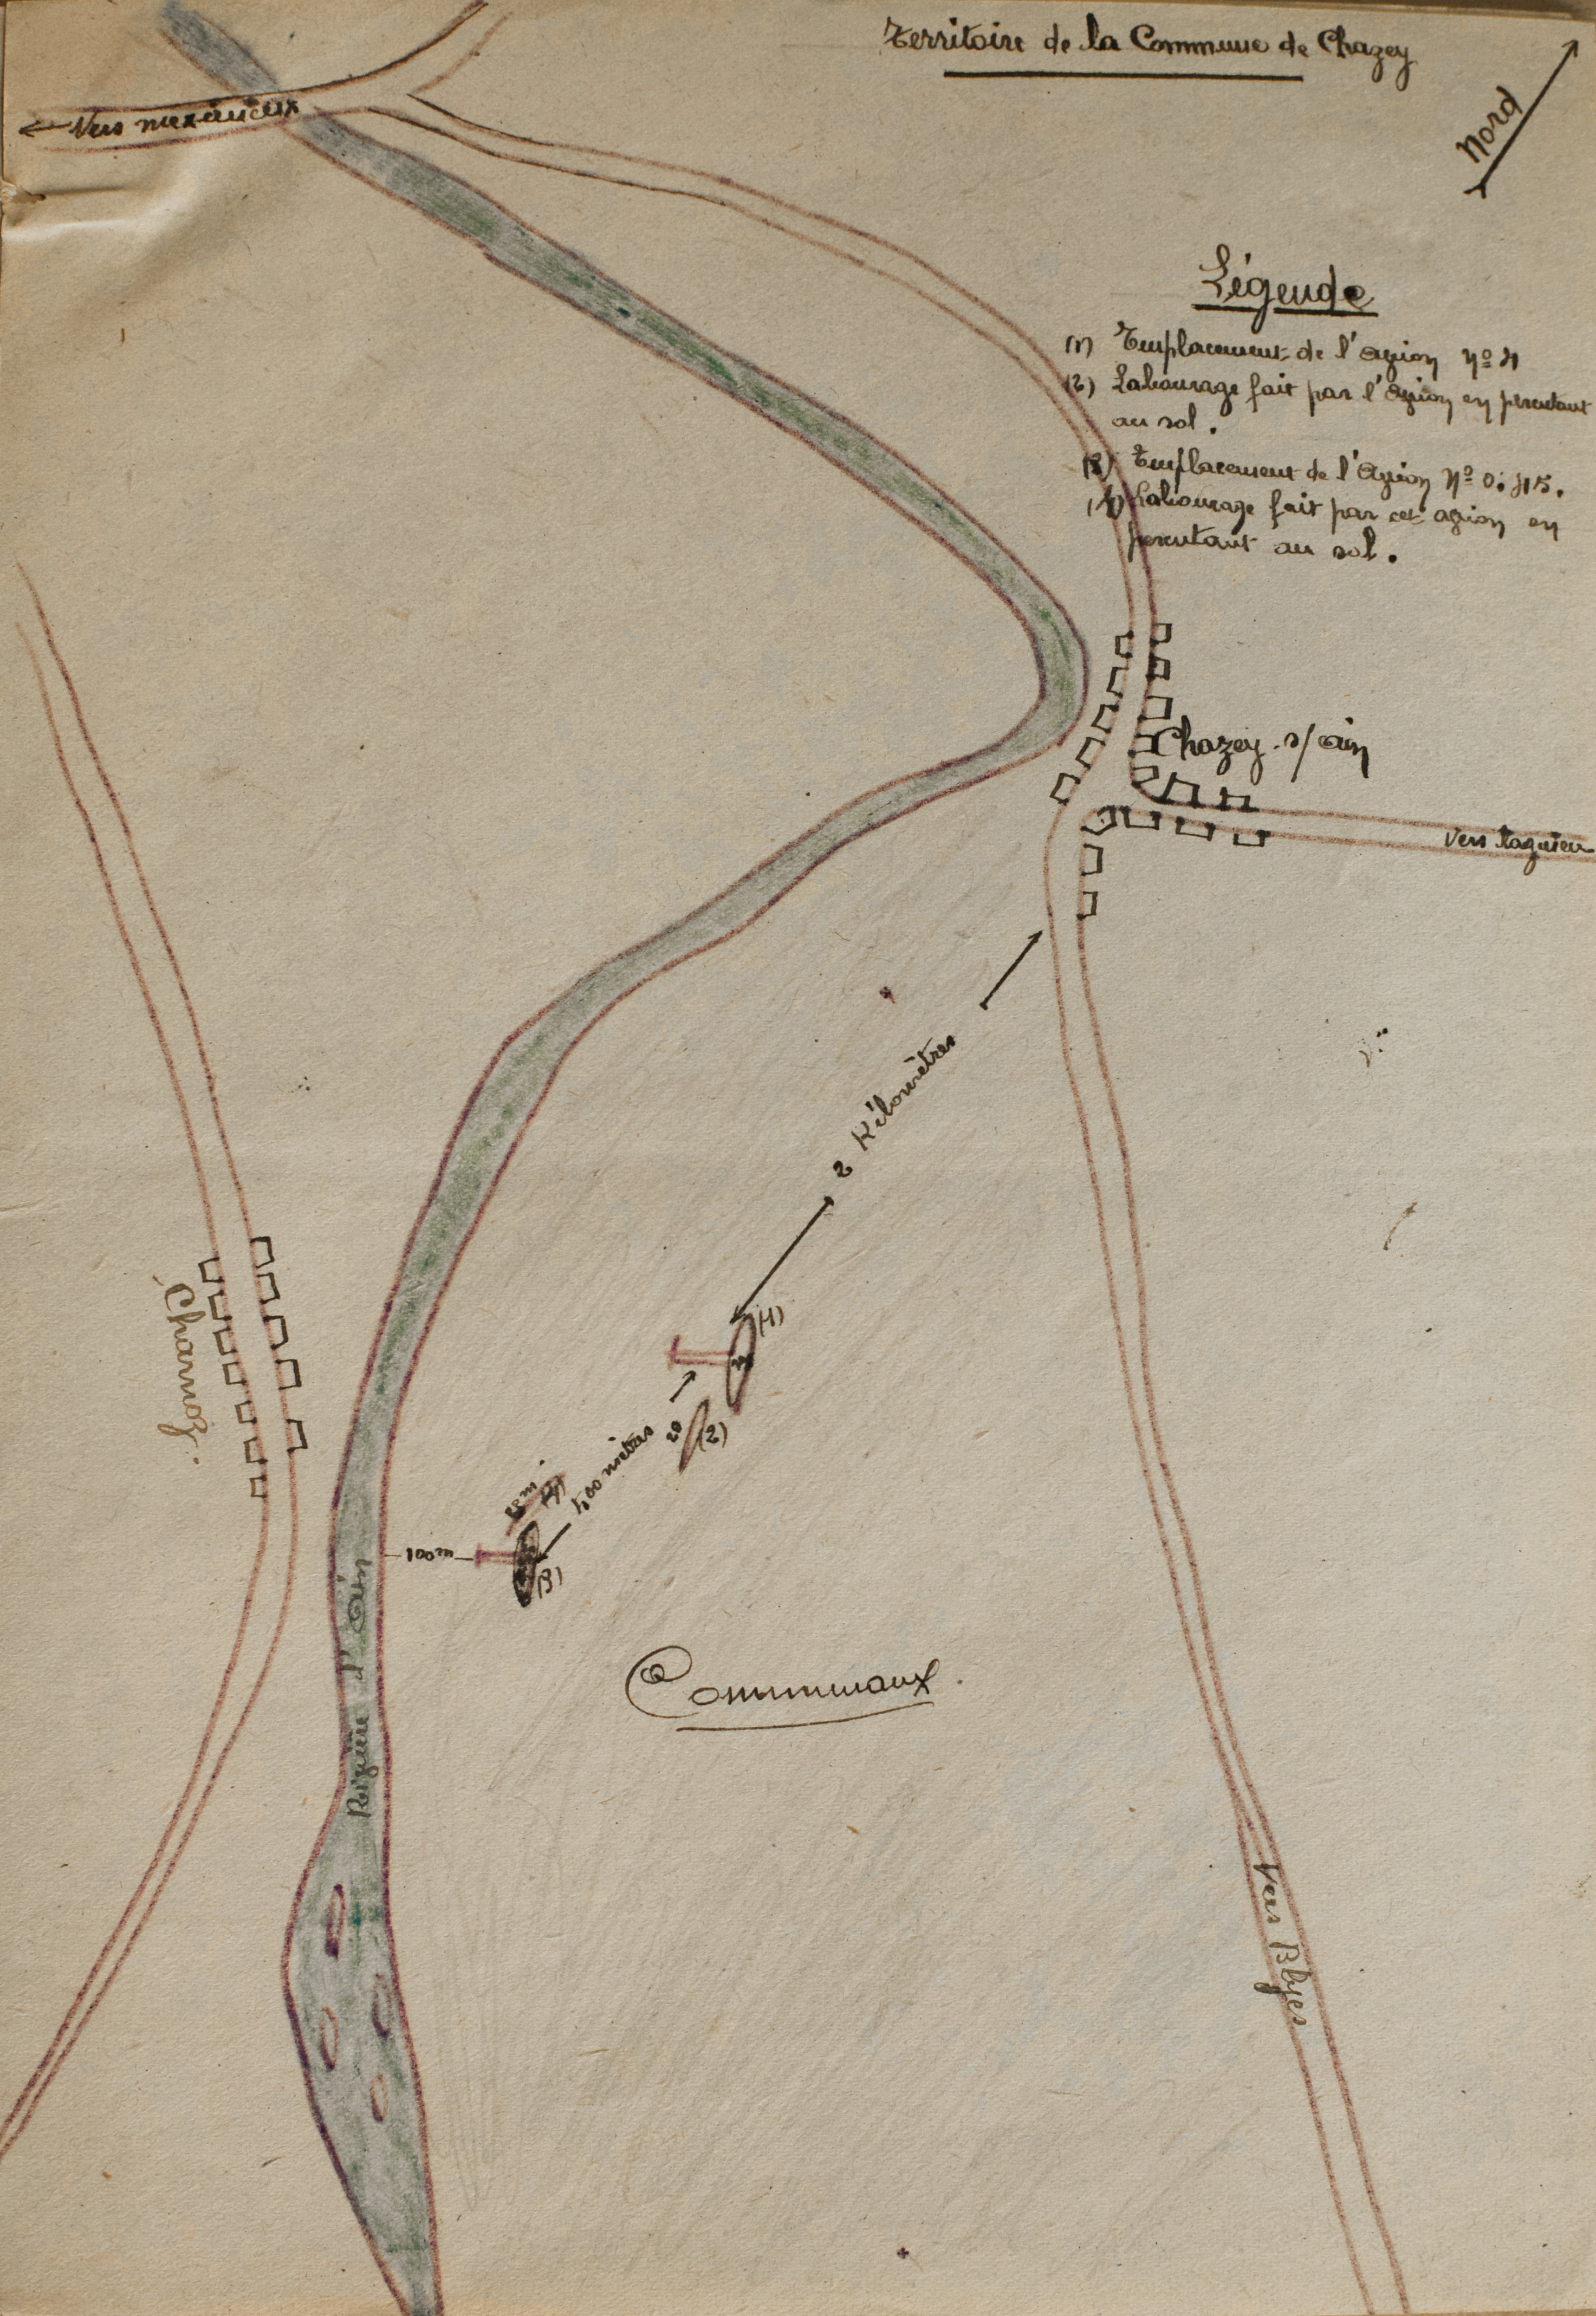 Territoire de la Commune de Chazey
Nord
← Vers meximieux
Légende
(1) Emplacement de l'avion nº 4
(2) Labourage fait par l'avion en percutant
au sol.
(3) Emplacement de l'avion Nº 0.415.
(4) Labourage fait par cet avion en
percutant au sol.
Chazey s/ain
Vers lagnieu
2 Kilomètres
Charnoz.
(1)
20
(2)
400 mètres
(4)
100m
(3)
Rivière d'Ain
Communaux.
Vers Blyes